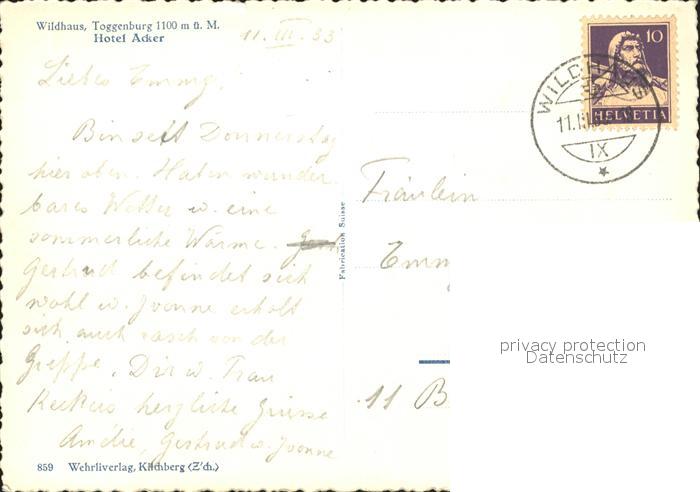 Wildhaus, Toggenburg 1100 m ü. M.
Hotel Acker
11. III. 33
Liebes Emmy!
Bin seit Donnerstag
hier oben. Haben wunder
bares Wetter u. eine
sommerliche Wärme.
Gertrud befindet sich
wohl u. Yvonne erholt
sich auch rasch von der
Grippe. Dir u. Frau
herzliche Grüsse
Amélie, Gertrud u. Yvonne
859 Wehrliverlag, Kilchberg (Z'ch.)
Fabrication Suisse
10
HELVETIA
WILDHAUS
11.III.
IX
Fräulein
Emmy
11 B
privacy protection
Datenschutz